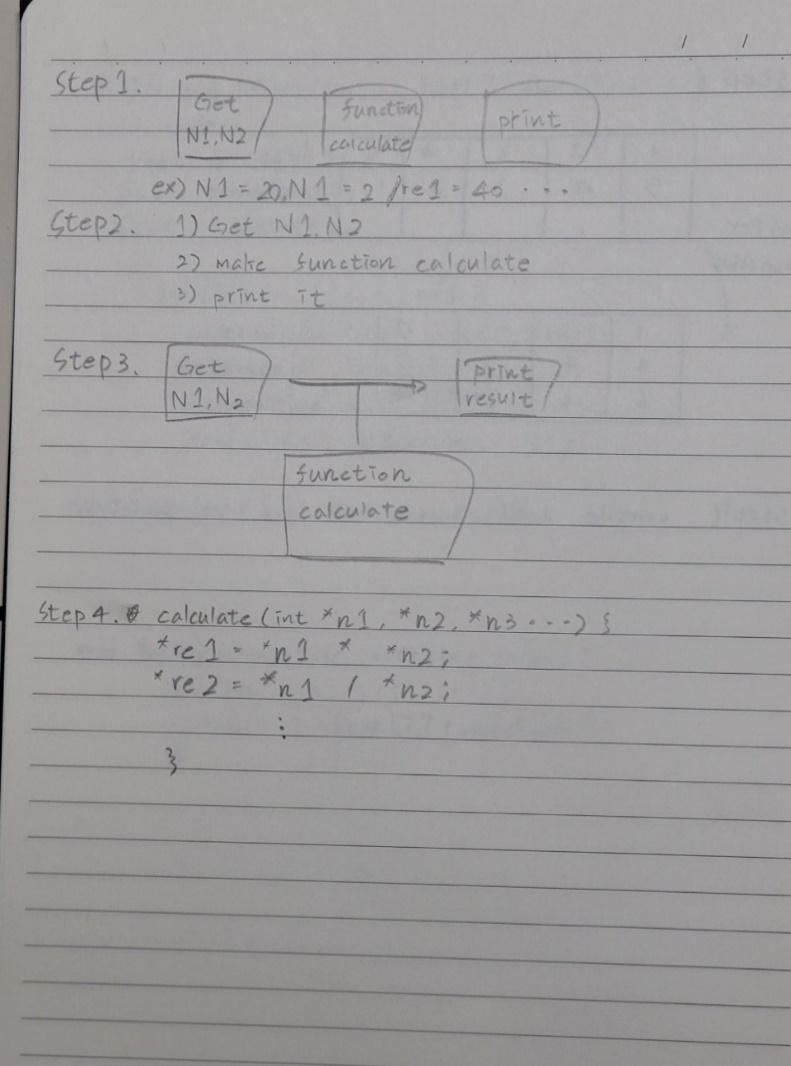 Step 1.
Get
N1, N2
function
calculate
print
ex) N1 = 20, N1 = 2 / re1 = 40 ...
Step2. 1) Get N1, N2
2) make function calculate
3) print it
Step3.
Get
N1, N2
print
result
function
calculate
Step 4. calculate (int *n1, *n2, *n3 ...) {
*re1 = *n1 * *n2;
*re2 = *n1 / *n2;
⋮
}